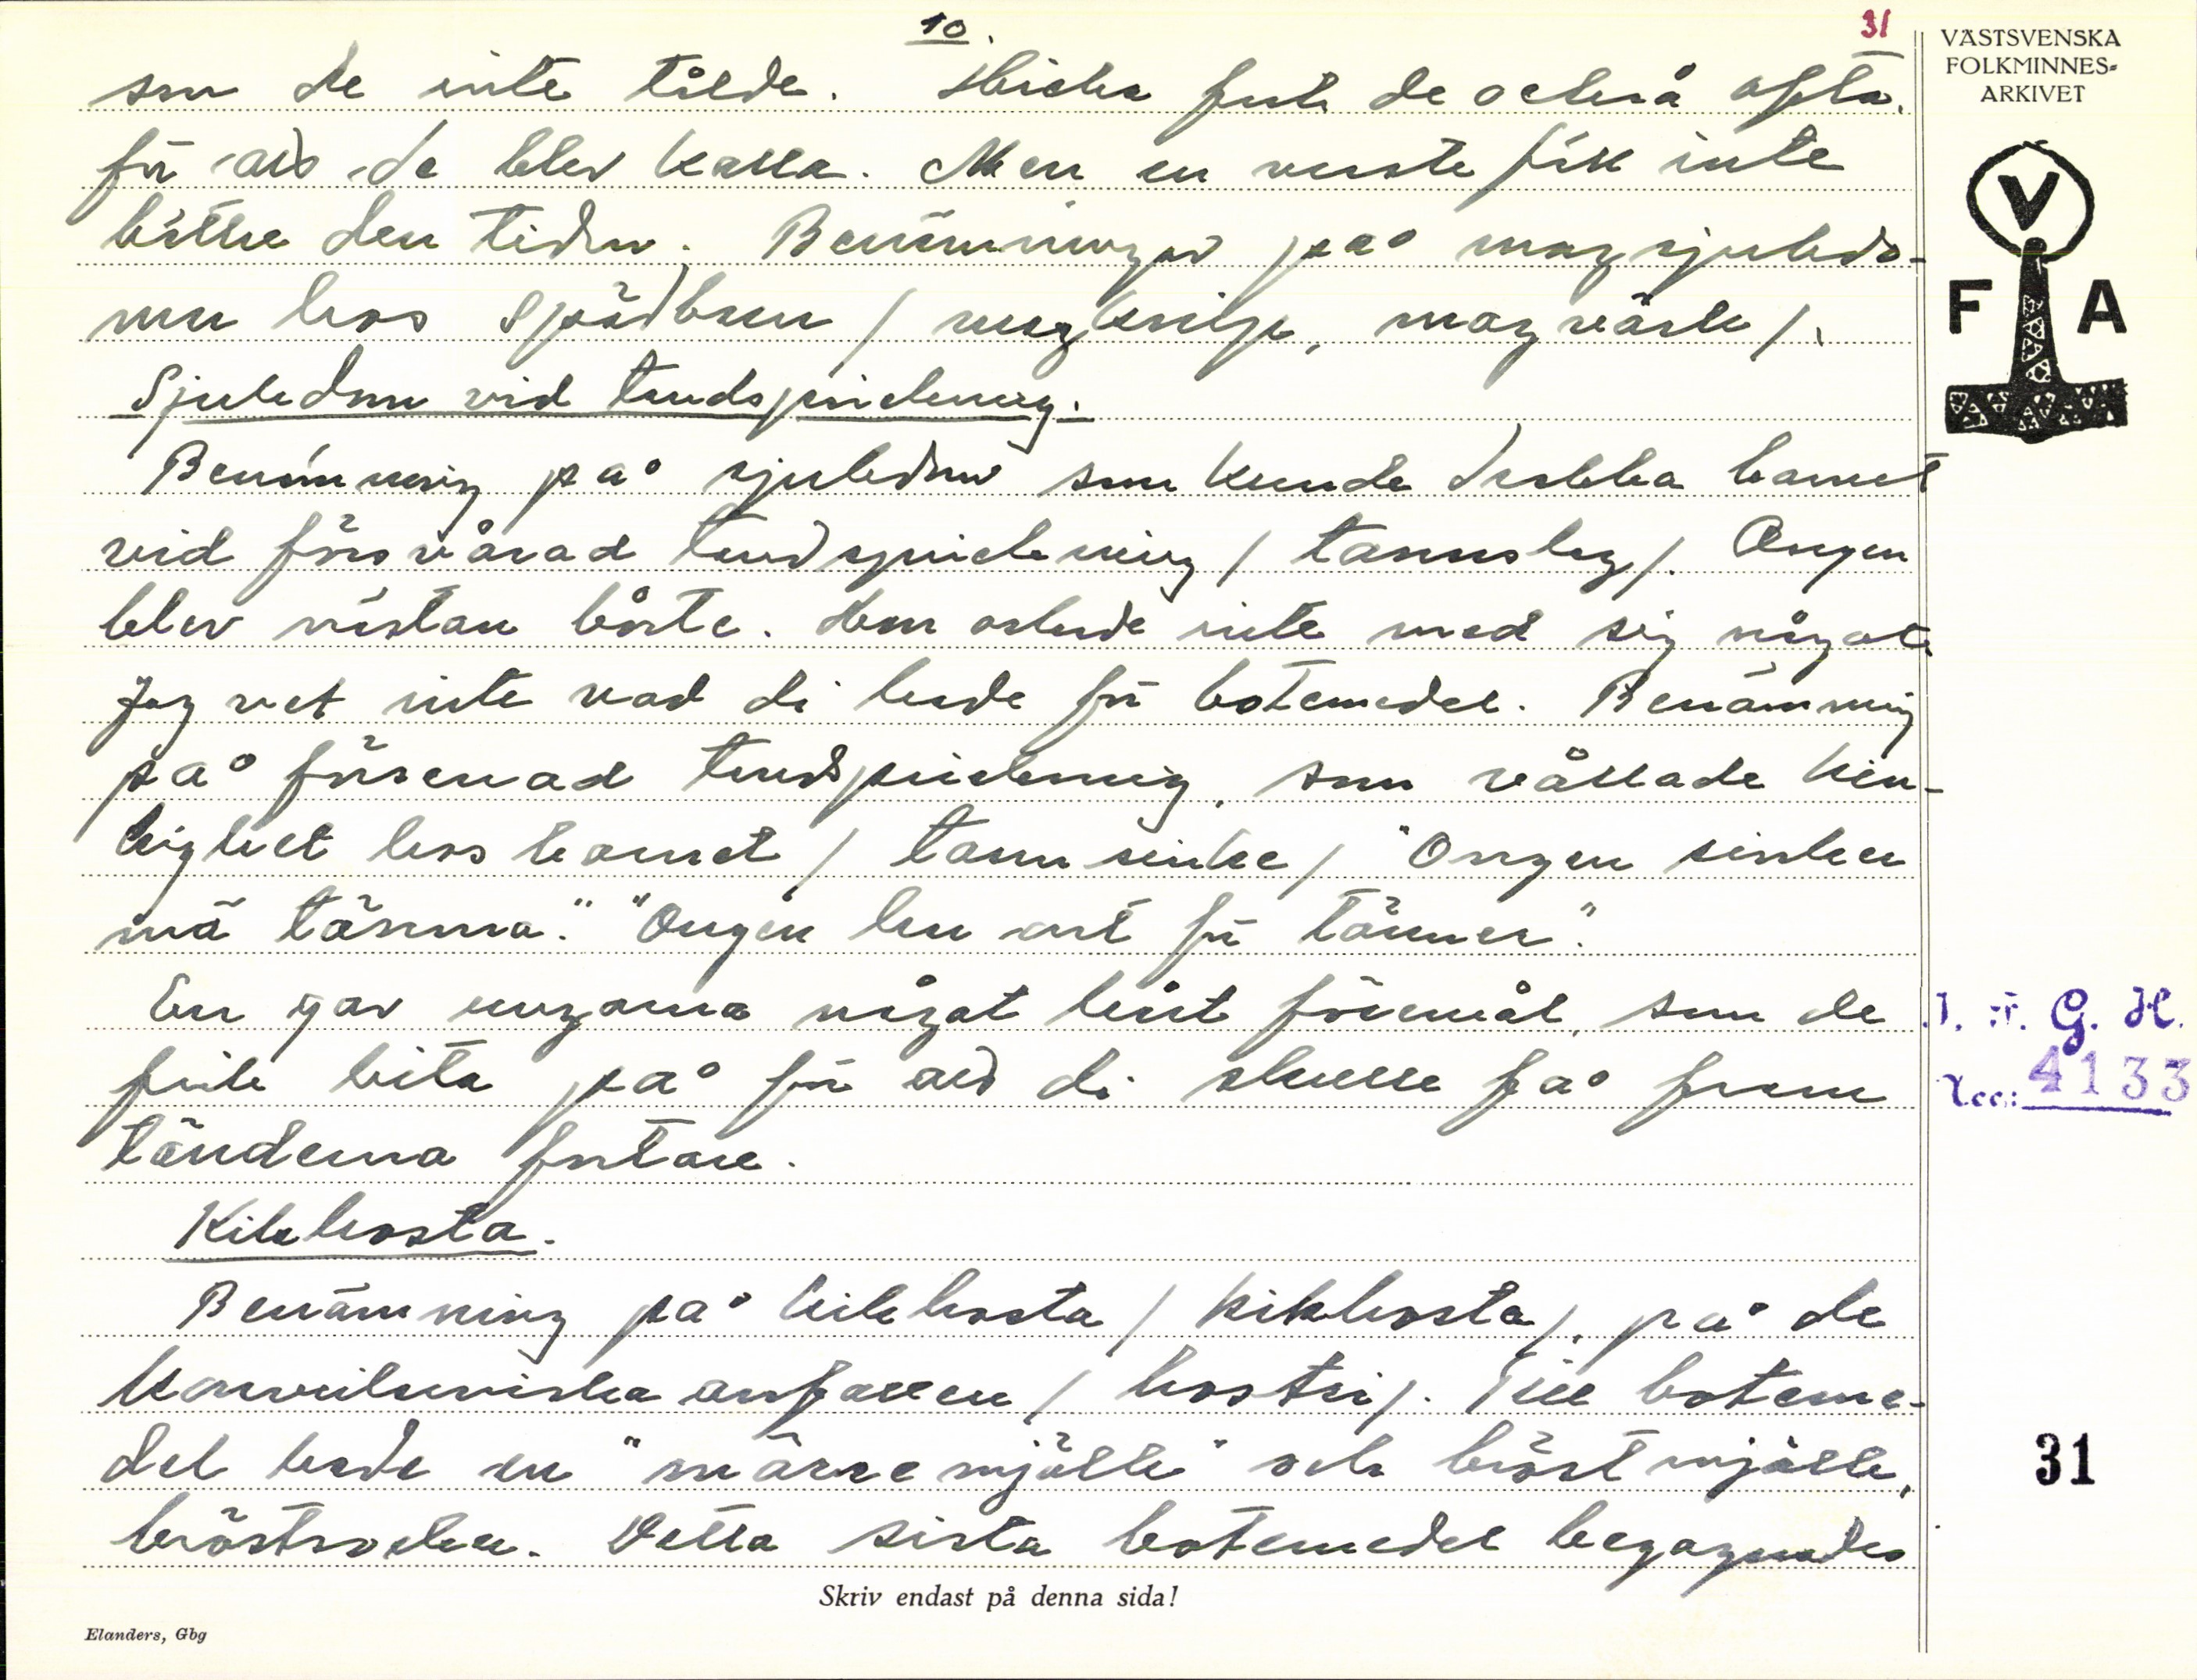 10.
31
VÄSTSVENSKA
FOLKMINNES=
ARKIVET
V
F A
som de inte tålde. Hicka fick de också ofta.
för att de blev kalla. Men en visste fick inte
bättre den tiden. Benämningar på magsjukdo-
mar hos spädbarn / magknip, magvärk /.
Sjukdom vid tandsprickning.
Benämning på sjukdom som kunde drabba barnet
vid försvårad tandsprickning / tannslag /. Ongen
blev nästan båtte. Den orkade inte med sig något.
Jag vet inte vad di hade för botemedel. Benämning
på försenad tandsprickning, som vållade kin-
kighet hos barnet / tannsinke / "Ongen sinker
mä tänna." "Ongen har ont för tänner".
En gav ungarna något hårt föremål, som de
fick bita på för att di skulle få fram
tänderna fortare.
Kikhosta.
Benämning på kikhosta / kikhosta /, på de
konvulsiviska anfallen / hostri /. Till boteme-
del hade en "märremjölk" och bröstmjölk,
bröstsocker. Detta sista botemedel begagnades
I. F. G. H.
Acc.: 4133
31
Skriv endast på denna sida!
Elanders, Gbg